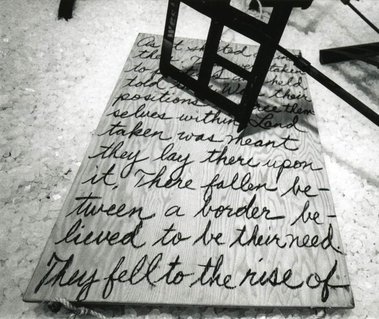 As it started
taken
to held
told Was their
positions them
selves within land
taken was meant
they lay there upon
it. There fallen be-
tween a border be-
lieved to be their need.
They fell to the rise of